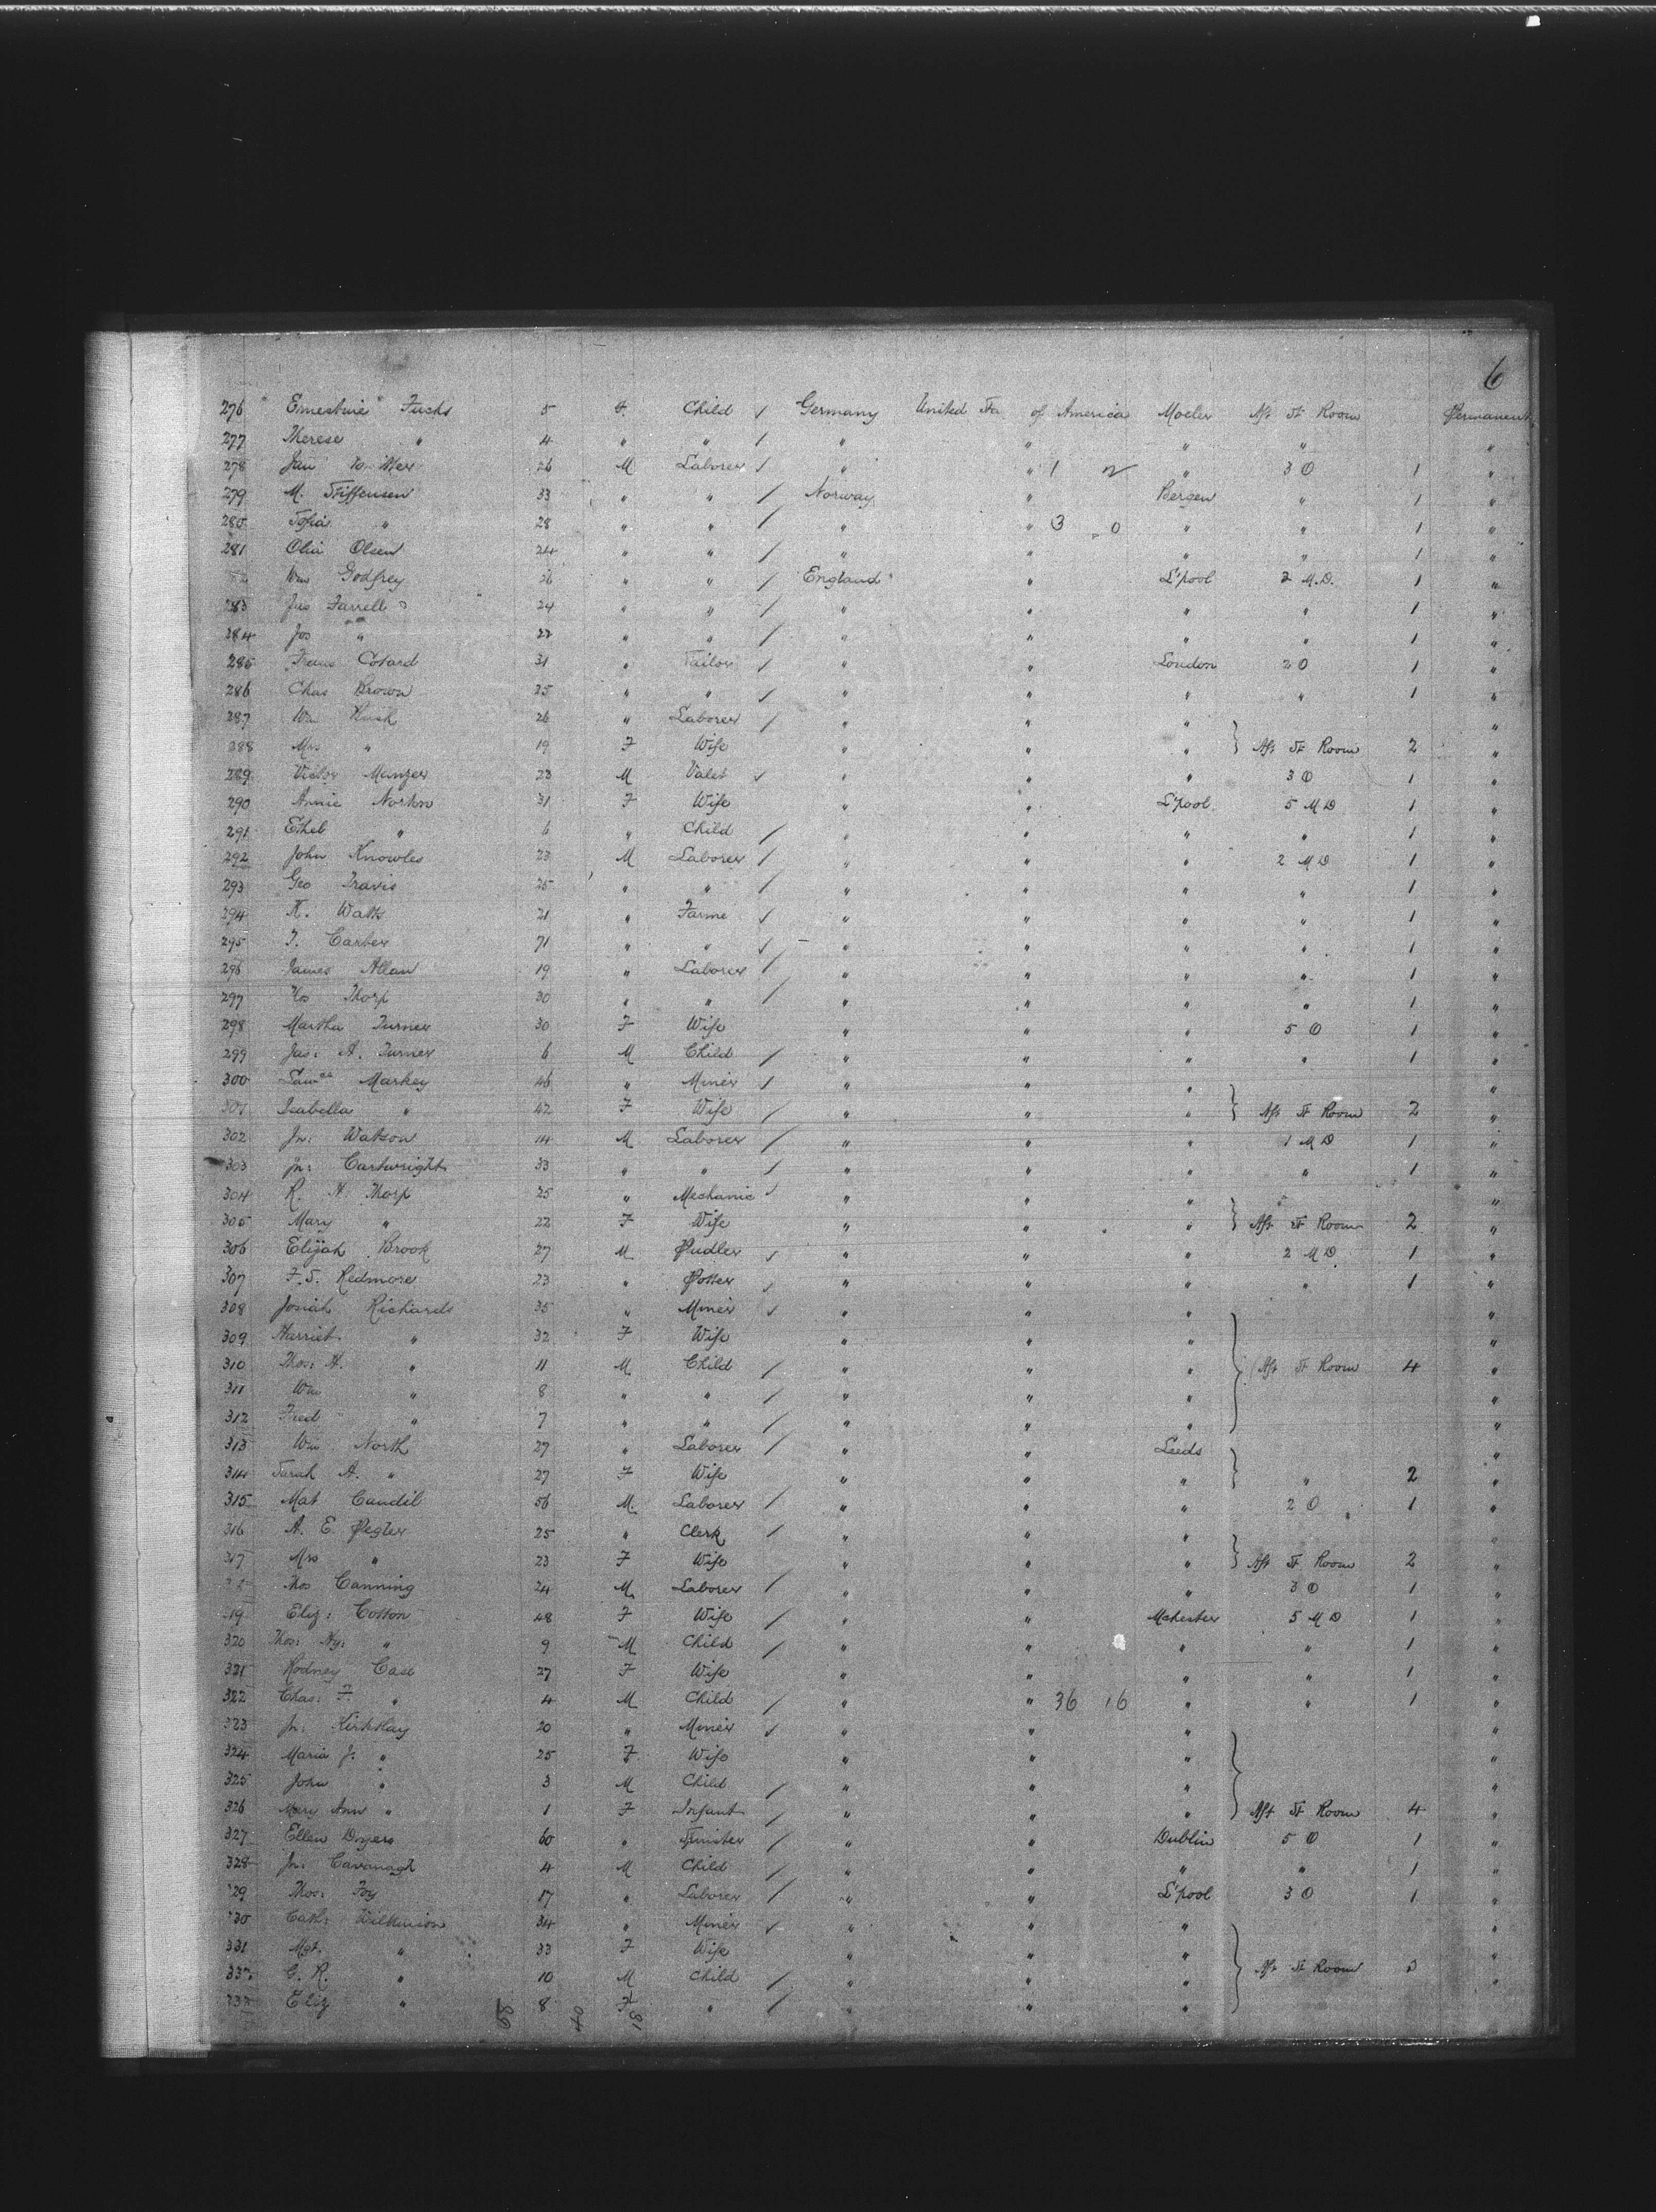 6
276 Ernestine Fuchs 5 F. Child Germany United Sta of America Aft St Room Permanent
277 Therese " 4 " " " " " " "
278 26 M Laborer " " 1 2 " 3 O 1 "
279 M. 33 " " Norway " Bergen " 1 "
280 Sofia " 28 " " " " 3 0 " " 1 "
281 Olia Olsen 24 " " " " " " 1 "
Wm Godfrey 26 " " England " L'pool 2 M.D. 1 "
283 Jas Farrell 24 " " " " " " 1 "
284 Jos " 22 " " " " " " 1 "
285 Cotard 31 " Tailor " " London 2 O 1 "
286 Chas Brown 25 " " " " " " 1 "
287 Wm 26 " Laborer " " " "
288 Mrs " 19 F Wife " " " Aft St Room 2 "
289 Victor Manzer 23 M Valet " " " 3 O 1 "
290 Annie Norton 31 F Wife " " L'pool 5 M D 1 "
291 Ethel " 6 " Child " " " " 1 "
292 John Knowles 23 M Laborer " " " 2 M D 1 "
293 Geo Travis 25 " " " " " " 1 "
294 K. Watts 21 " Farme " " " " 1 "
295 T. Carter 71 " " " " " " 1 "
296 James Allan 19 " Laborer " " " " 1 "
297 Thorp 30 " " " " " " 1 "
298 Martha Turner 30 F Wife " " " 5 O 1 "
299 Jas: A. Turner 6 M Child " " " " 1 "
300 Markey 46 " Miner " " " "
301 Isabella " 42 F Wife " " " Aft St Room 2 "
302 Jn: Watson 14 M Laborer " " " 1 M D 1 "
303 Jn: Cartwright 33 " " " " " " 1 "
304 R. H. Thorp 25 " Mechanic " " " "
305 Mary " 22 F Wife " " " Aft St Room 2 "
306 Elijah Brook 27 M Pudler " " " 2 M D 1 "
307 F. S. Redmore 23 " Potter " " " " 1 "
308 Josiah Richards 35 " Miner " " " "
309 Harriet " 32 F Wife " " " "
310 Thos: H. " 11 M Child " " " Aft St Room 4 "
311 Wm " 8 " " " " " "
312 Fred " 7 " " " " " "
313 Wm North 27 " Laborer " " Leeds "
314 Sarah A. " 27 F Wife " " " " 2 "
315 Mat Caudil 56 M. Laborer " " " 2 O 1 "
316 A. E. Pegler 25 " Clerk " " " "
317 Mrs " 23 F Wife " " " Aft St Room 2 "
Thos Canning 24 M Laborer " " " 3 O 1 "
319 Eliz: Cotton 48 F Wife " " Mchester 5 M D 1 "
320 Thos: Hy: " 9 M Child " " " " 1 "
321 Rodney Case 27 F Wife " " " " 1 "
322 Chas: F. " 4 M Child " " 36 16 " " 1 "
323 Jn: 20 " Miner " " " "
324 Maria J: " 25 F Wife " " " "
325 John " 3 M Child " " " "
326 Mary Ann " 1 F Infant " " " Aft St Room 4 "
327 Ellen 60 " Spinster " " Dublin 5 O 1 "
328 Jn: Cavanagh 4 M Child " " " " 1 "
329 Thos: Foy 17 " Laborer " " L'pool 3 O 1 "
330 Cath: Wilkinson 34 " Miner " " " "
331 Mgt. " 33 F Wife " " " "
332 G. R. " 10 M Child " " " Aft St Room "
Eliz " 8 F " " " "